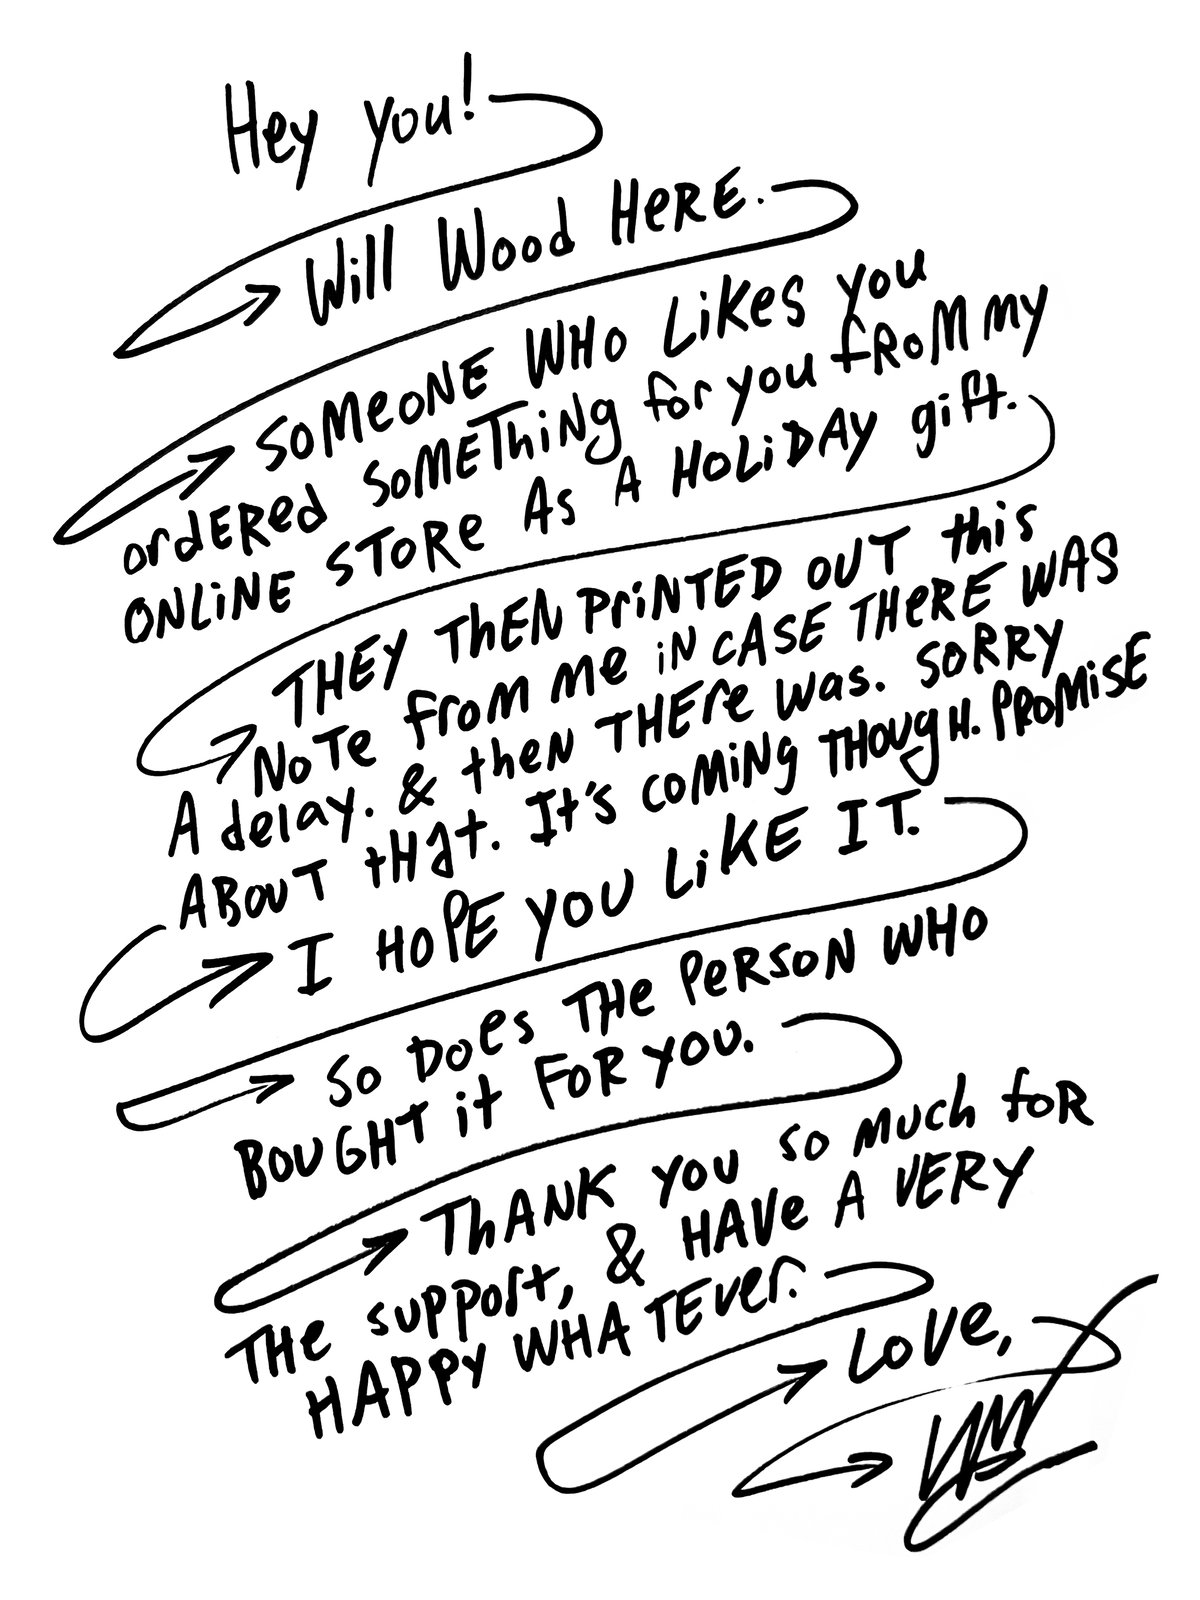 Hey you!
Will Wood HERE.
SOMEONE WHO LiKES you
ordERed SOMEThiNg for you fROM MY
ONLiNE STORE AS A HOLiDAY gift.
THEY ThEN PriNTED OUT this
NOTE from me iN CASE THERE WAS
A delay. & then THEre was. SORRY
ABOUT tHat. It's COMiNg THOUgH. PROMiSE
I HOPE YOU LiKE IT.
SO DOES THE PERSON WHO
BOUGHT it FOR YOU.
ThANK you so much foR
THE support, & HAVE A VERY
HAPPY WHATEver.
LOVE,